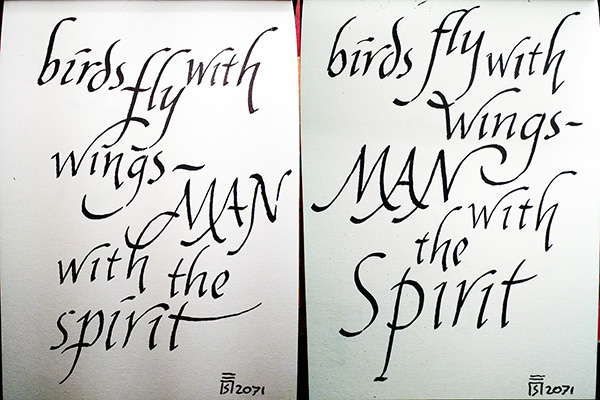 birds fly with
wings-
MAN
with the
spirit
2071
birds fly with
wings-
MAN with
the
Spirit
2071